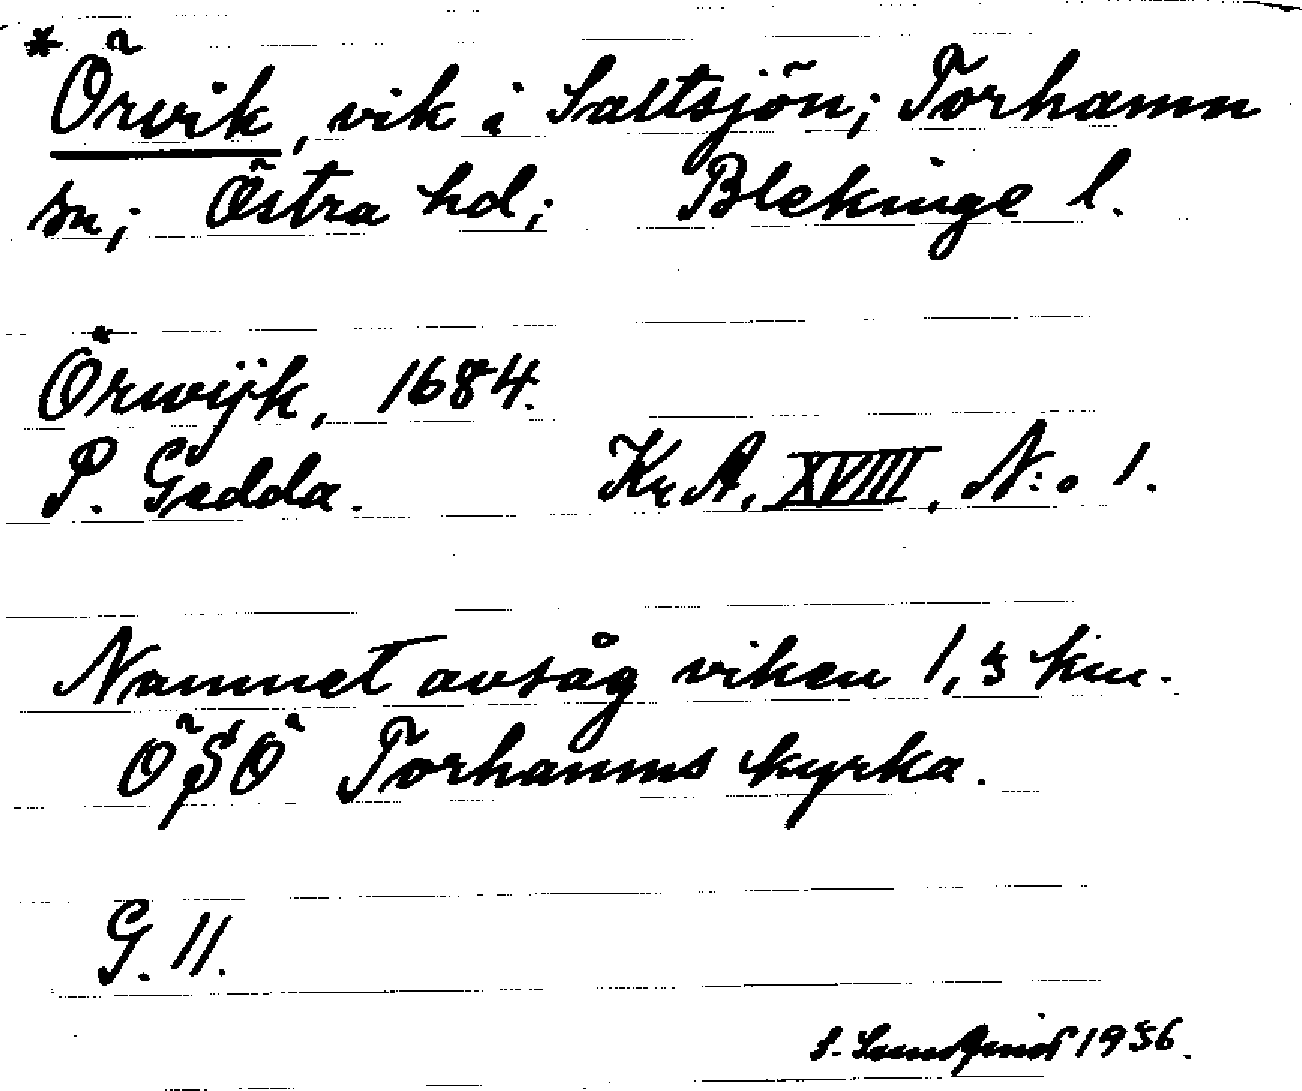 * Örvik, vik i Saltsjön; Torhamn
sn; Östra hd; Blekinge l.
Örwijk, 1684.
P. Gedda. Kr A, XVIII, N:o 1.
Namnet avsåg viken 1,5 km.
ÖSÖ Torhamns kyrka.
G. 11.
1956.